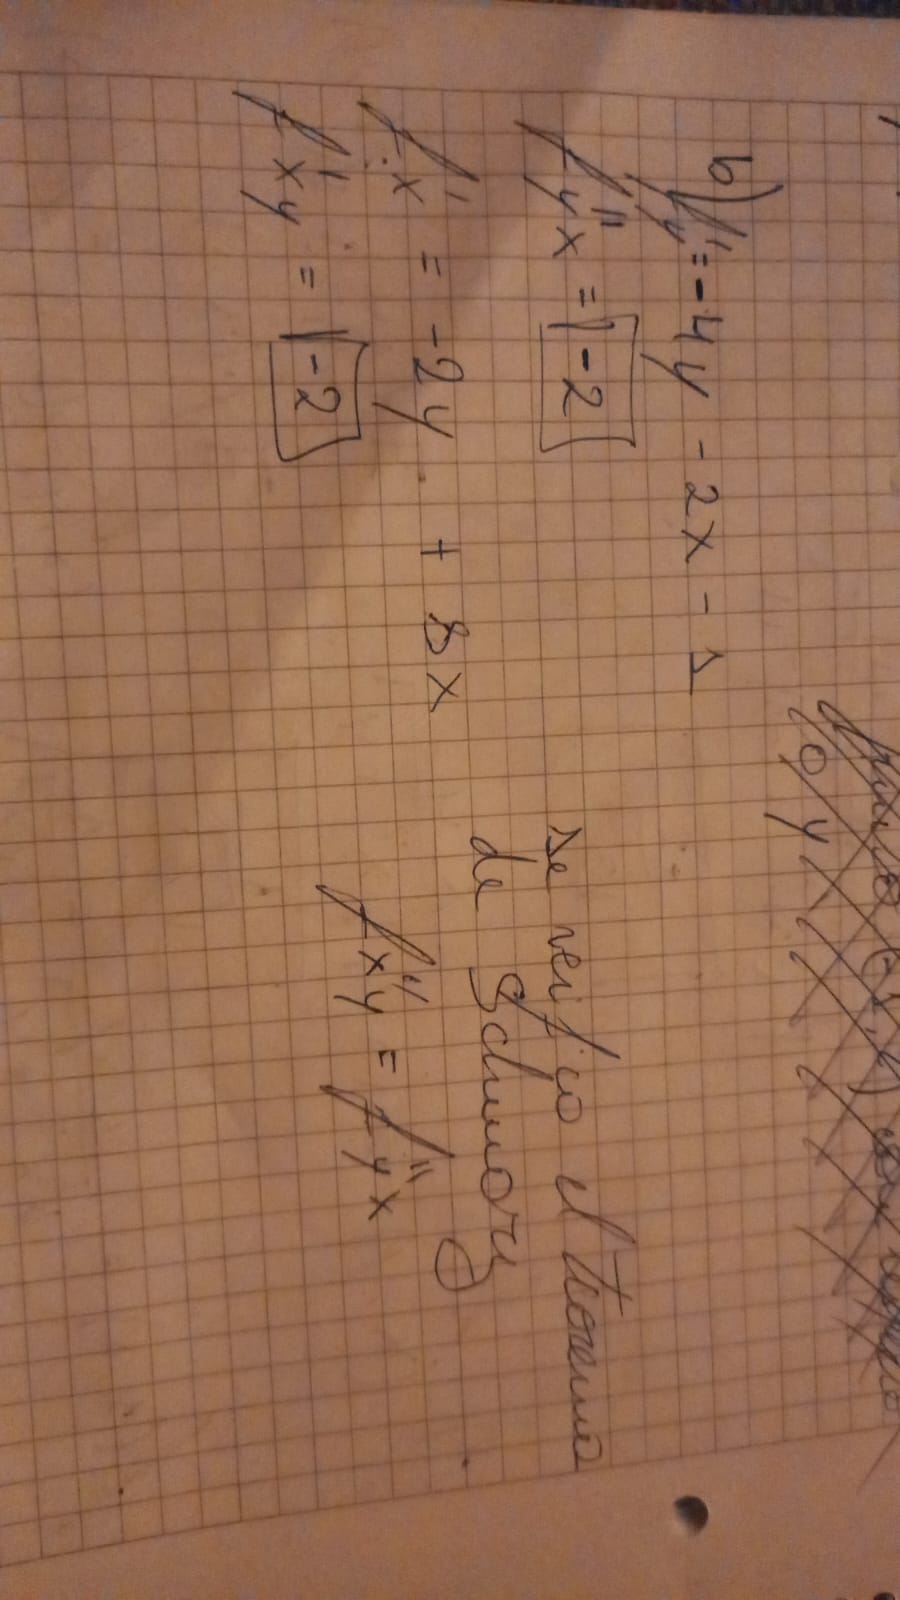 b) f'y = -4y - 2x - 1
f''yx = -2
f'x = -2y + 8x
f''xy = -2
se verifica el teorema
de Schwarz
f''xy = f''yx